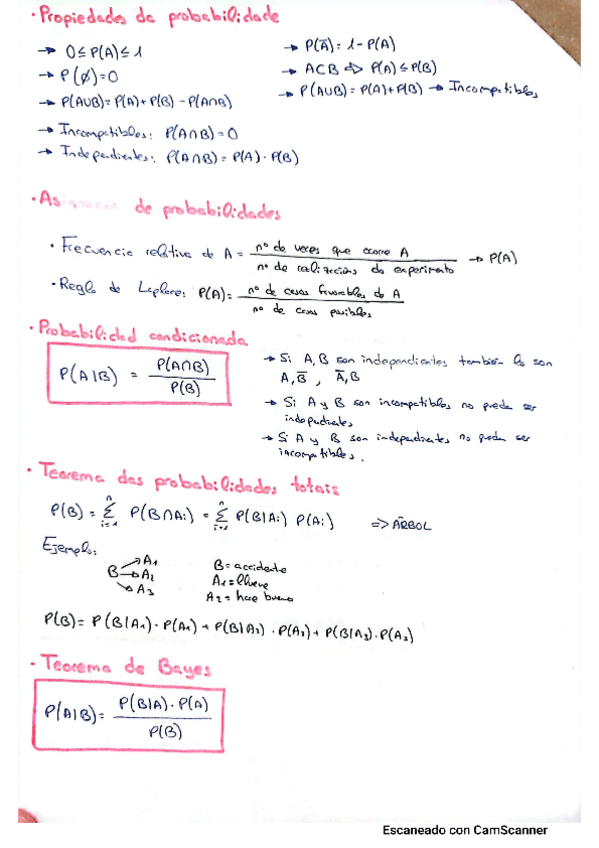 · Propiedades da probabilidade
→ 0 ≤ P(A) ≤ 1
→ P(∅)=0
→ P(A∪B) = P(A) + P(B) - P(A∩B)
→ Incompatibles: P(A∩B)=0
→ Independientes: P(A∩B) = P(A) · P(B)
→ P(Ā) = 1 - P(A)
→ A⊂B ⇨ P(A) ≤ P(B)
→ P(A∪B) = P(A)+P(B) → Incompatibles
· Asignación de probabilidades
· Frecuencia relativa de A = nº de veces que ocorre A / nº de realizacións do experimento → P(A)
· Regla de Laplace: P(A) = nº de casos favorables do A / nº de casos posibles
· Probabilidad condicionada
P(A|B) = P(A∩B) / P(B)
→ Si A, B son independientes también lo son
A, B̄ , Ā, B
→ Si A y B son incompatibles no pueden ser
independientes
→ Si A y B son independientes no pueden ser
incompatibles.
· Teorema das probabilidades totais
P(B) = ∑ⁿᵢ₌₁ P(B∩Aᵢ) = ∑ⁿᵢ₌₁ P(B|Aᵢ) P(Aᵢ) => ÁRBOL
Ejemplo:
B → A₁
→ A₂
→ A₃
B = accidente
A₁ = llueve
A₂ = hace bueno
P(B) = P(B|A₁) · P(A₁) + P(B|A₂) · P(A₂) + P(B|A₃) · P(A₃)
· Teorema de Bayes
P(A|B) = P(B|A) · P(A) / P(B)
Escaneado con CamScanner